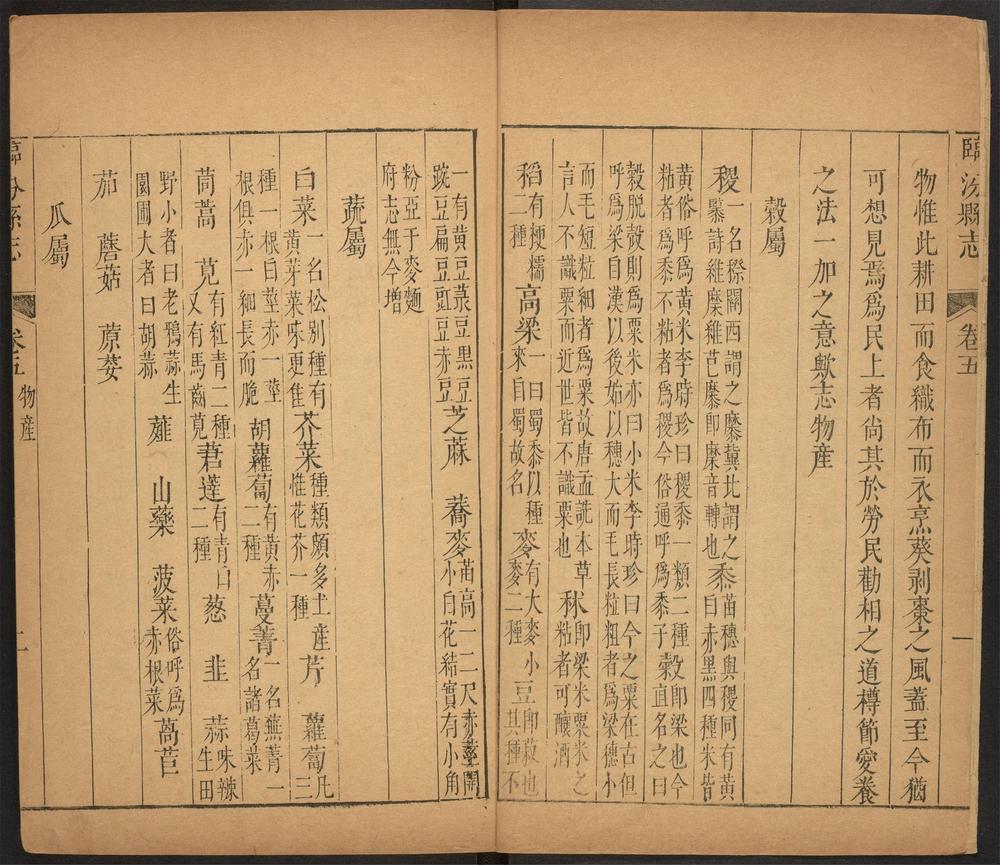 臨汾縣志 卷五 一
物惟此耕田而食織布而衣烹葵剥棗之風蓋至今猶
可想見焉爲民上者尚其於勞民勸相之道樽節愛養
之法一加之意歟志物産
穀屬
稷一名穄關西謂之䵚冀北謂之䵖詩維穈維芑䵚卽穈音轉也黍苗穗與稷同有黃白赤黑四種米皆
黃俗呼爲黃米李時珍曰稷黍一類二種粘者爲黍不粘者爲稷今俗通呼爲黍子穀卽粱也今直名之曰
穀脫殼則爲粟米亦曰小米李時珍曰今之粟在古但呼爲粱自漢以後始以穗大而毛長粒粗者爲粱穗小
而毛短粒細者爲粟故唐孟詵本草言人不識粟而近世皆不識粱也秫卽粱米粟米之粘者可釀酒
稻有粳糯二種高粱一曰蜀黍以種來自蜀故名麥有大麥小麥二種豆卽菽也其種不
一有黃豆菉豆黑豆豌豆扁豆豇豆赤豆芝蔴 蕎麥苗高一二尺赤莖開小白花結實有小角
粉亞于麥麵府志無今增
蔬屬
白菜一名松別種有黃芽菜味更佳芥菜種類頗多土産惟花芥一種芹 蘿蔔凡三
種一根白莖赤一莖根俱赤一細長而脆胡蘿蔔有黃赤二種蔓菁一名蕪菁一名諸葛菜
茼蒿 莧有紅青二種又有馬齒莧莙薘有青白二種葱 韭 蒜味辣生田
野小者曰老鴉蒜生園圃大者曰胡蒜 薤 山藥 菠菜俗呼爲赤根菜萵苣
茄 蘑菇 蒝荽
瓜屬
臨汾縣志 卷五 物産 二